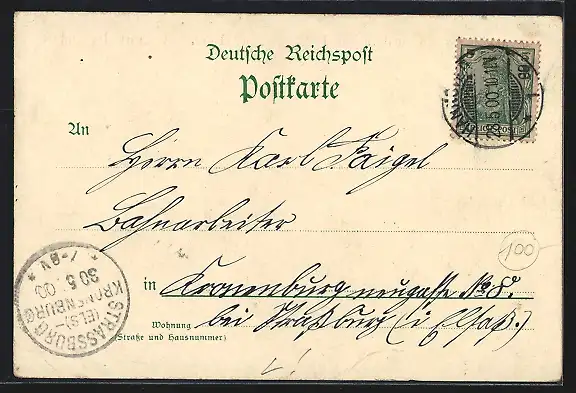 Deutsche Reichspost
Postkarte
An
Herrn Karl Faigel
Bahnarbeiter
in Kronenburg neugasse No 8.
Wohnung
(Straße und Hausnummer)
bei Straßburg (i Elsaß.)
28.5.00.10-11N
100
STRASSBURG
(ELS)-
KRONENBURG
30.5.00
7-8V